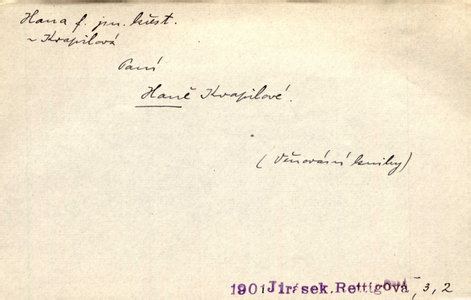 Hana f. jm. křest.
~ Kvapilová
Paní
Haně Kvapilové.
(Věnování knihy)
1901 Jirásek. Rettigová, 3, 2